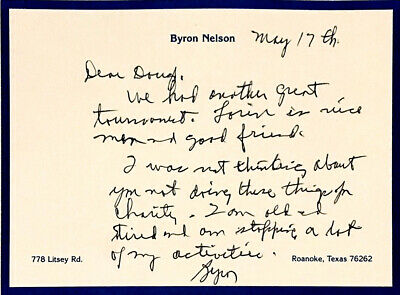 Byron Nelson
May 17th.
Dear Doug,
We had another great
tournament. Loren is nice
man and good friend.
I was not thinking about
you not doing these things for
charity. I am old and
tired and am stopping a lot
of my activities.
Byron
778 Litsey Rd.
Roanoke, Texas 76262